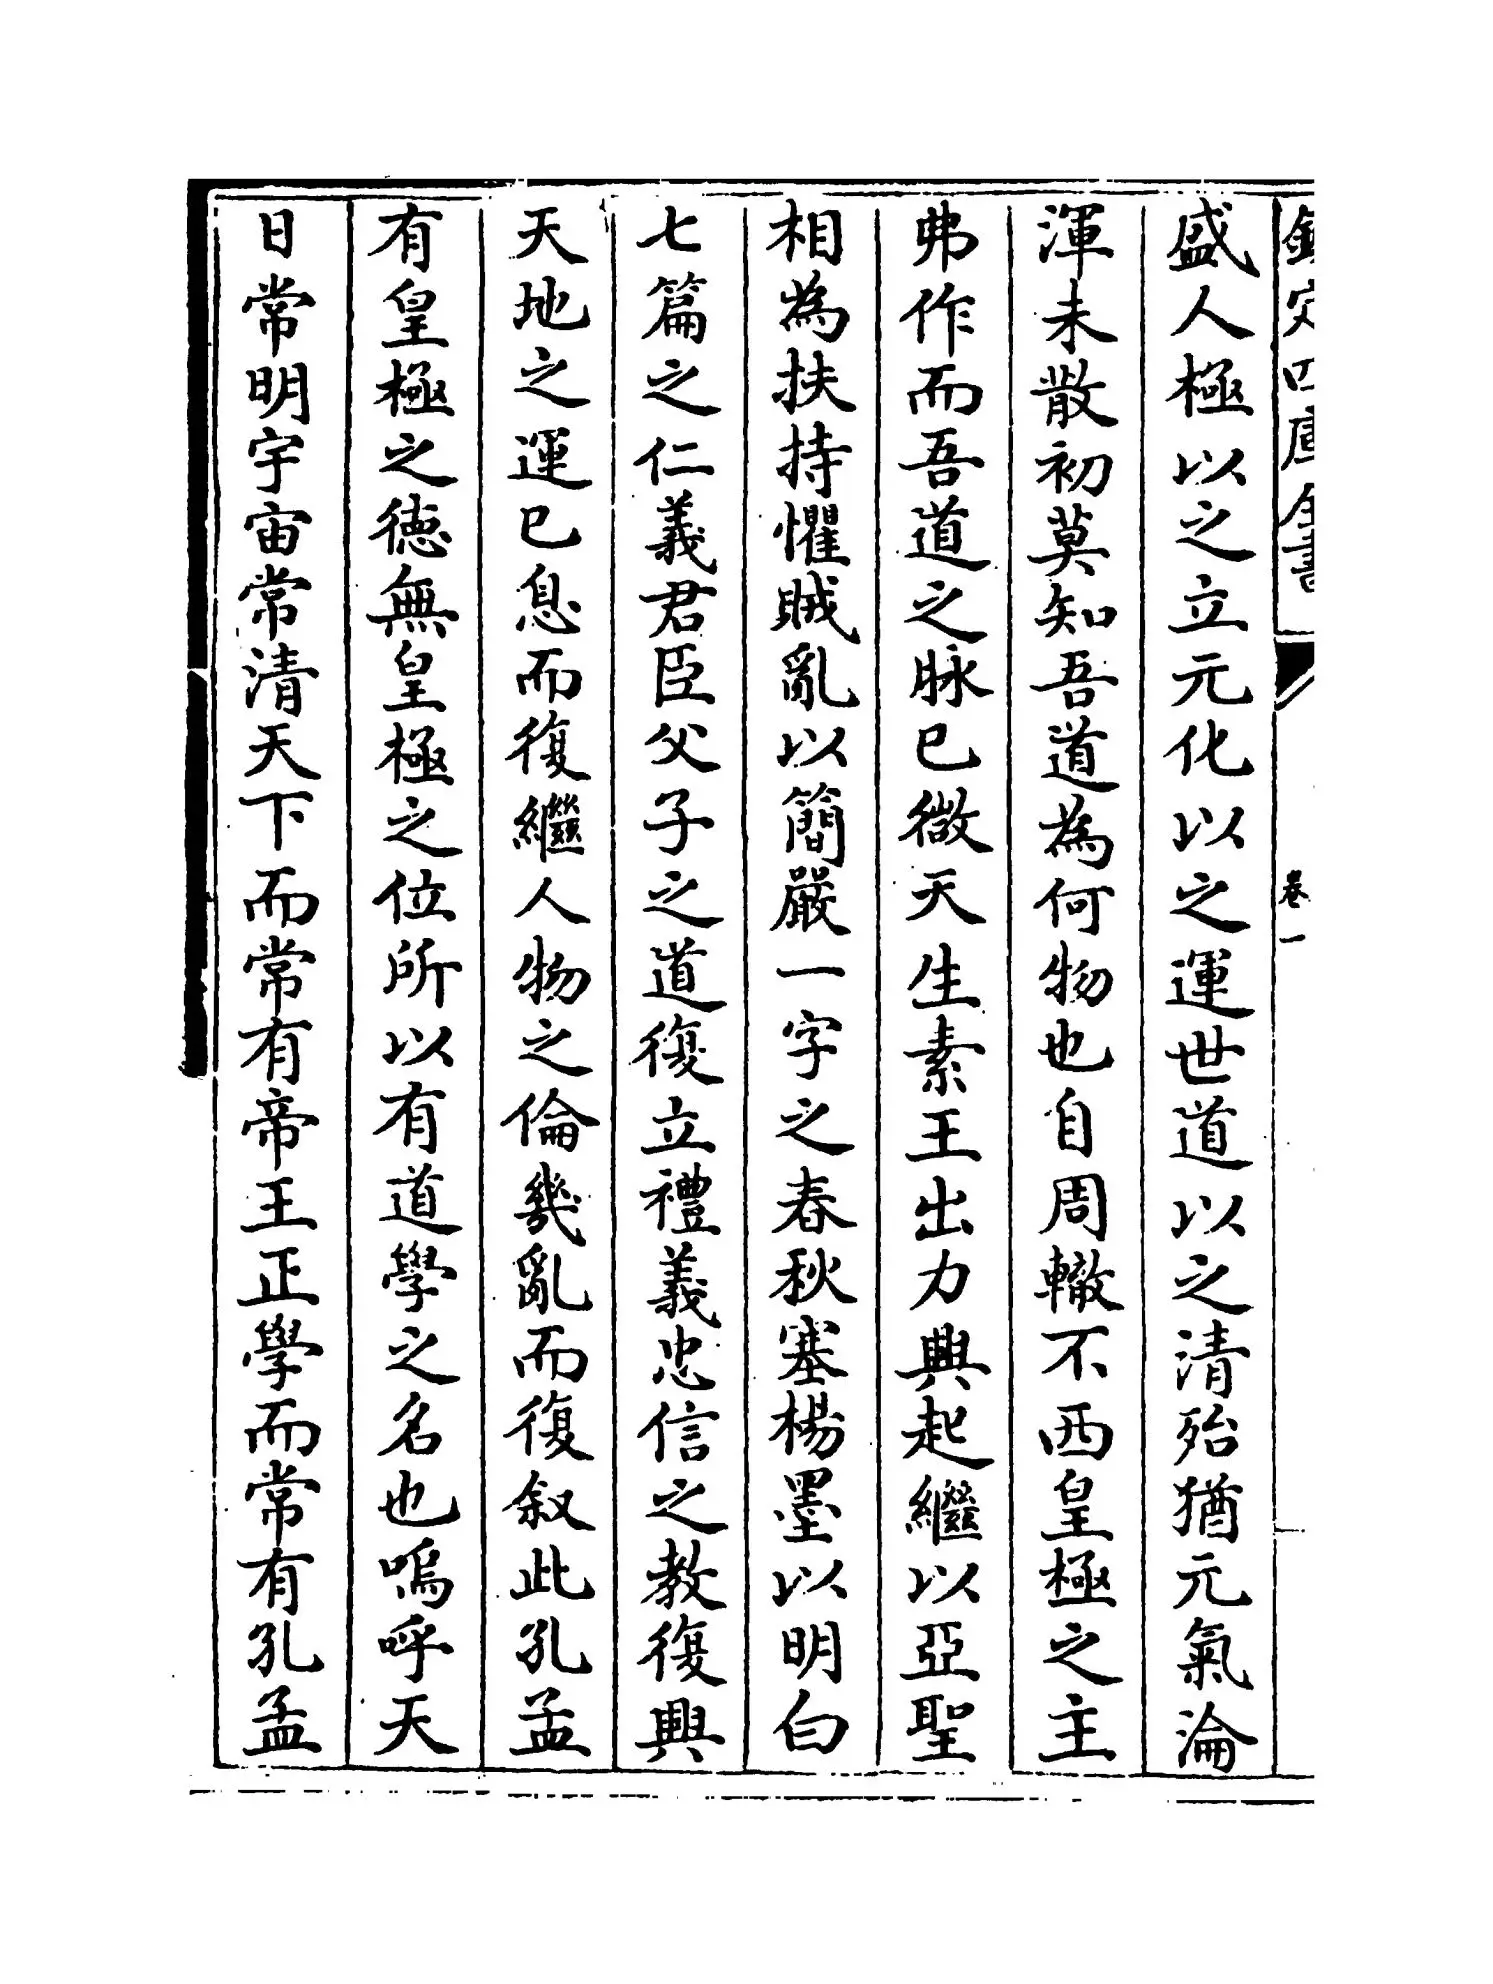 欽定四庫全書
卷一
盛人極以之立元化以之運世道以之清殆猶元氣淪
渾未散初莫知吾道為何物也自周轍不西皇極之主
弗作而吾道之脉已微天生素王出力興起繼以亞聖
相為扶持懼賊亂以簡嚴一字之春秋塞楊墨以明白
七篇之仁義君臣父子之道復立禮義忠信之教復興
天地之運已息而復繼人物之倫幾亂而復叙此孔孟
有皇極之德無皇極之位所以有道學之名也嗚呼天
日常明宇宙常清天下而常有帝王正學而常有孔孟